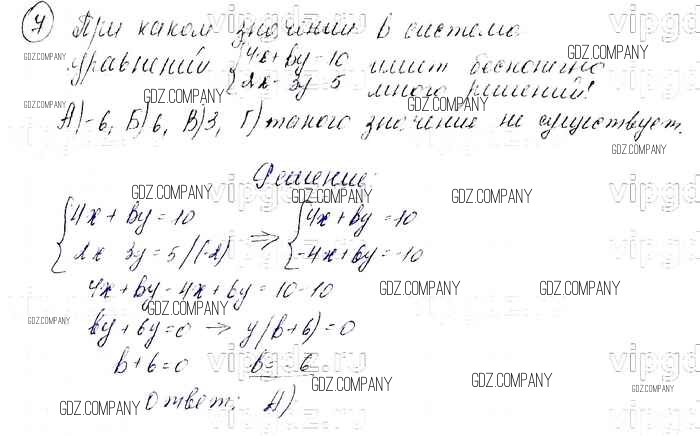 7) При каком значении b система
уравнений { 4x + by = 10 имеет бесконечно
{ 2x - 3y = 5 много решений?
А) -6, Б) 6, В) 3, Г) такого значения не существует.
Решение:
{ 4x + by = 10 ⇒ { 4x + by = 10
{ 2x 3y = 5 /(-2) { -4x + 6y = -10
4x + by - 4x + 6y = 10 - 10
by + 6y = 0 → y(b+6) = 0
b + 6 = 0 b = 6
Ответ: А)
GDZ.COMPANY
vipgdz.ru